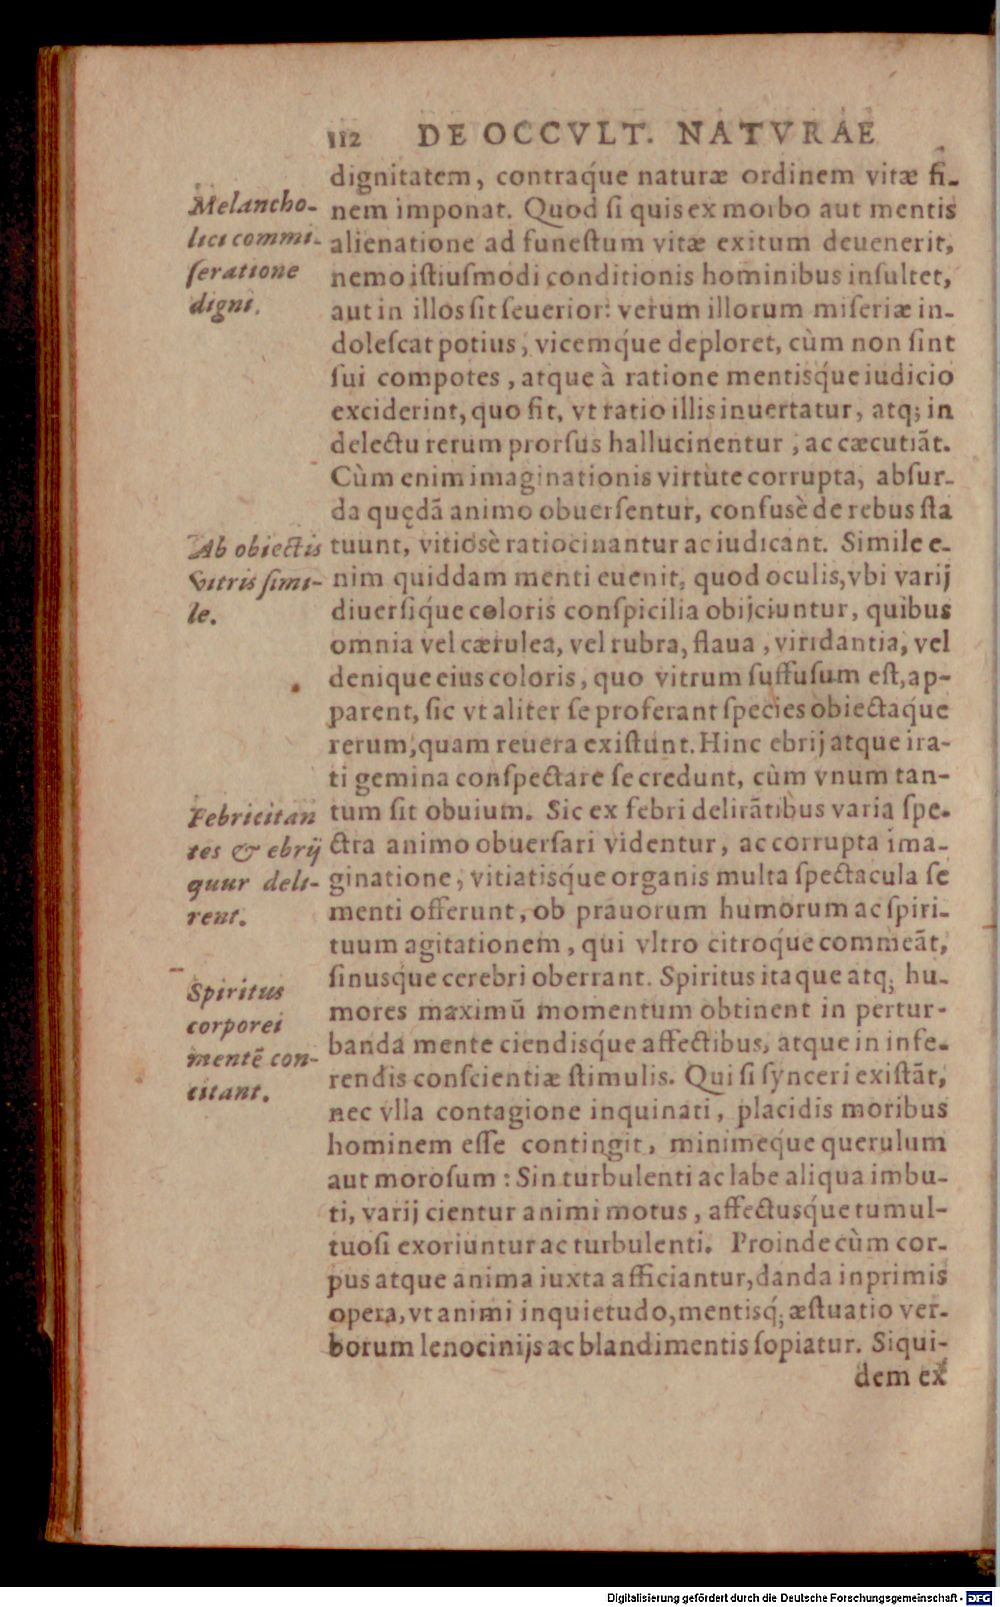 112 DE OCCVLT. NATVRAE
dignitatem, contraq́ue naturæ ordinem vitæ fi-
nem imponat. Quod ſi quis ex morbo aut mentis
alienatione ad funeſtum vitæ exitum deuenerit,
nemo iſtiuſmodi conditionis hominibus inſultet,
aut in illos ſit ſeuerior: verum illorum miſeriæ in-
doleſcat potius, vicemq́ue deploret, cùm non ſint
ſui compotes, atque à ratione mentisq́ue iudicio
exciderint, quo fit, vt ratio illis inuertatur, atq; in
delectu rerum prorſus hallucinentur, ac cæcutiãt.
Cùm enim imaginationis virtute corrupta, abſur-
da quędã animo obuerſentur, confusè de rebus ſta
tuunt, vitiosè ratiocinantur ac iudicant. Simile e-
nim quiddam menti euenit, quod oculis, vbi varij
diuerſiq́ue coloris conſpicilia obijciuntur, quibus
omnia vel cærulea, vel rubra, flaua, viridantia, vel
denique eius coloris, quo vitrum ſuffuſum eſt, ap-
parent, ſic vt aliter ſe proferant ſpecies obiectaq́ue
rerum, quam reuera exiſtunt. Hinc ebrij atque ira-
ti gemina conſpectare ſe credunt, cùm vnum tan-
tum ſit obuium. Sic ex febri delirãtibus varia ſpe-
ctra animo obuerſari videntur, ac corrupta ima-
ginatione, vitiatisq́ue organis multa ſpectacula ſe
menti offerunt, ob prauorum humorum ac ſpiri-
tuum agitationem, qui vltro citroq́ue commeãt,
ſinusq́ue cerebri oberrant. Spiritus itaque atq; hu-
mores maximũ momentum obtinent in pertur-
banda mente ciendisq́ue affectibus, atque in infe-
rendis conſcientiæ ſtimulis. Qui ſi ſynceri exiſtãt,
nec vlla contagione inquinati, placidis moribus
hominem eſſe contingit, minimeq́ue querulum
aut moroſum: Sin turbulenti ac labe aliqua imbu-
ti, varij cientur animi motus, affectusq́ue tumul-
tuoſi exoriuntur ac turbulenti. Proinde cùm cor-
pus atque anima iuxta afficiantur, danda inprimis
opera, vt animi inquietudo, mentisq́; æſtuatio ver-
borum lenocinijs ac blandimentis ſopiatur. Siqui-
dem ex
Melancho-
lici commi-
ſeratione
digni.
Ab obiectis
vitris ſimi-
le.
Febricitan
tes & ebrij
quur deli-
rent.
Spiritus
corporei
mentẽ con-
citant.
Digitalisierung gefördert durch die Deutsche Forschungsgemeinschaft - DFG